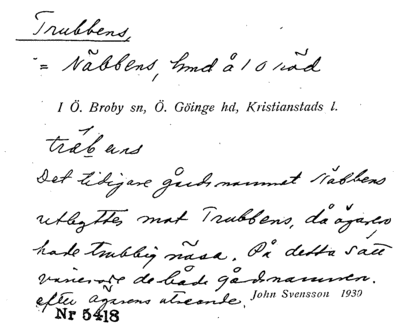 Trubbens,
= Näbbens, hmd å 1 0 röd
I Ö. Broby sn, Ö. Göinge hd, Kristianstads l.
Det tidigare gårdsnamnet Näbbens
utbyttes mot Trubbens, då ägaren
hade trubbig näsa. På detta sätt
de båda gårdsnamnen.
efter ägarens utseende.
John Svensson 1930
Nr 5418